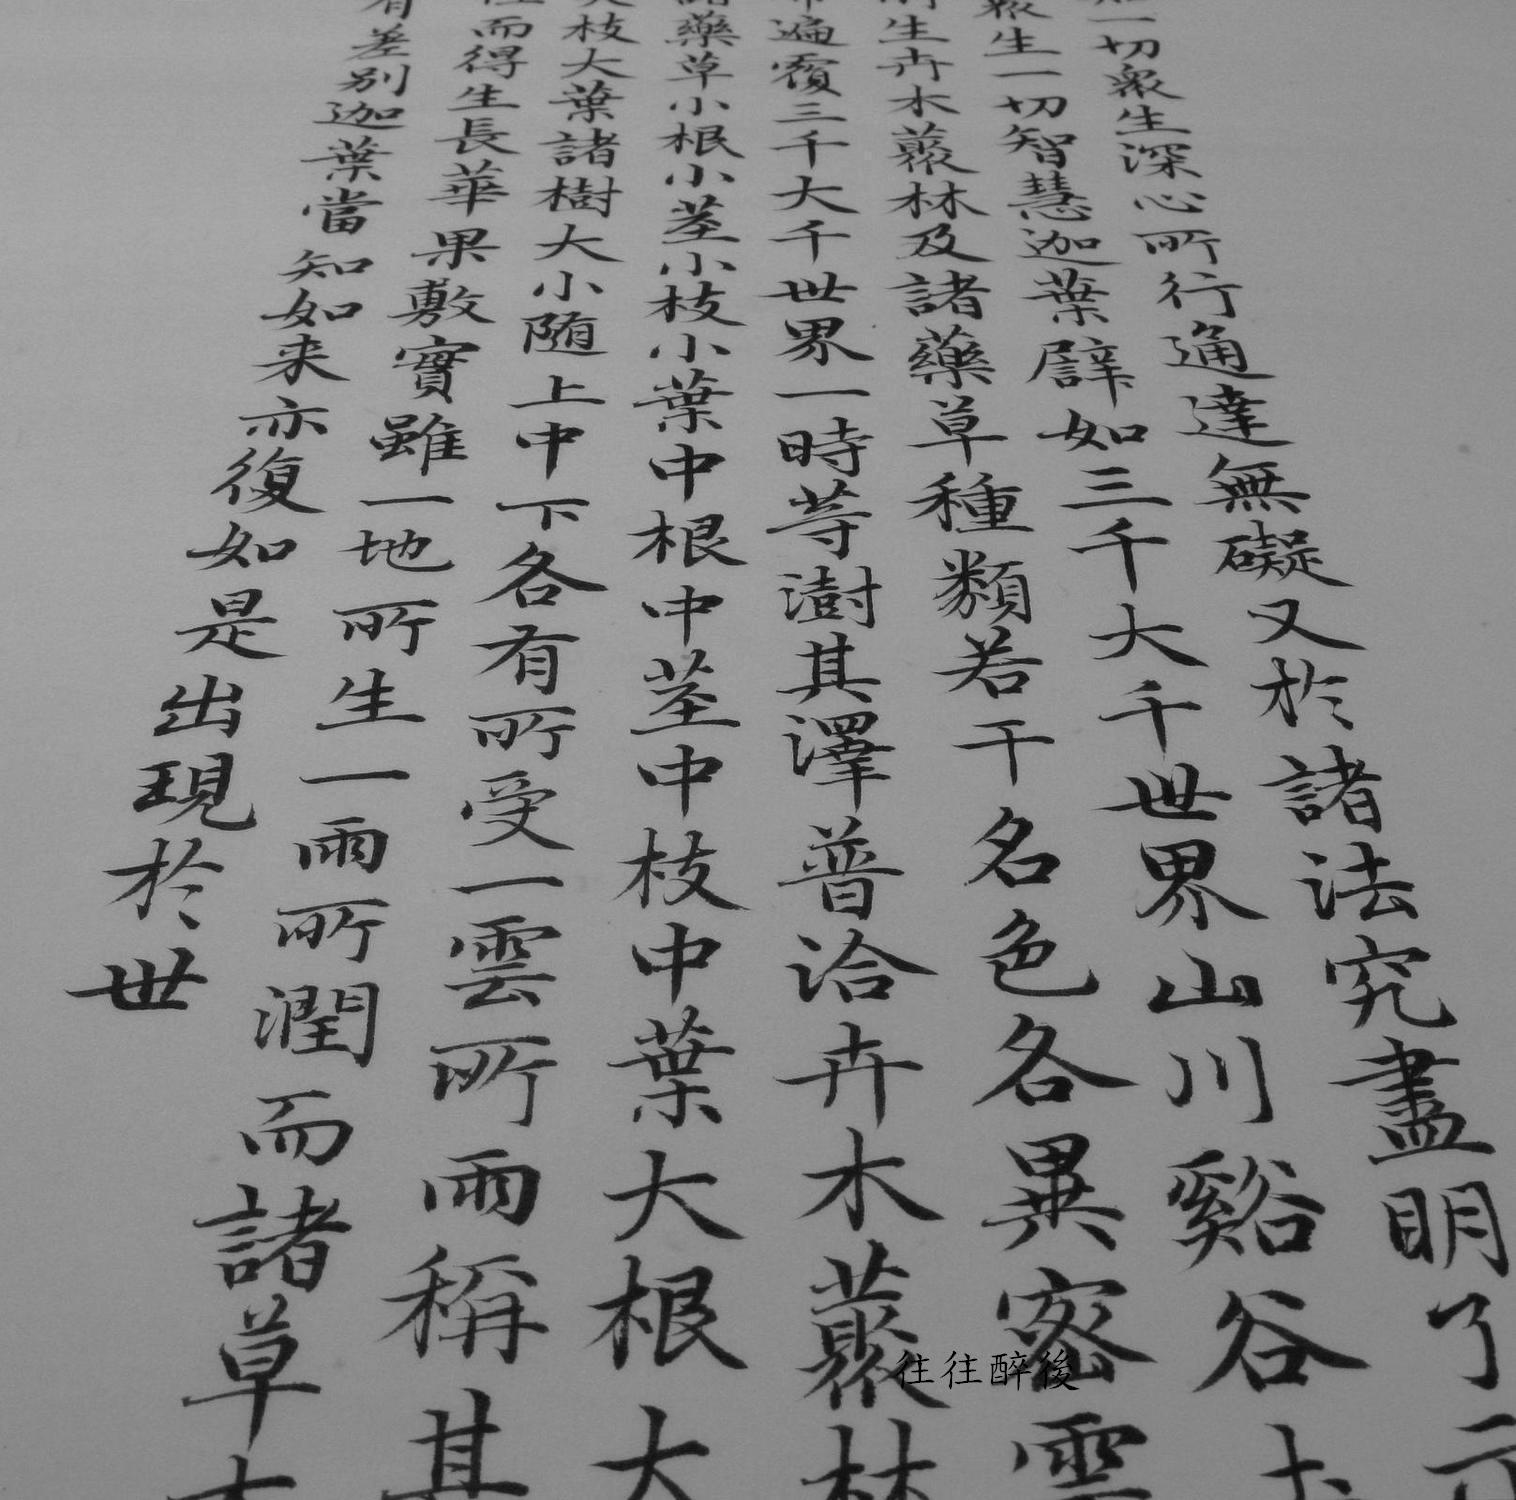 一切衆生深心所行通達無礙又於諸法究盡明了
衆生一切智慧迦葉譬如三千大千世界山川谿谷土
生卉木藂林及諸藥草種類若干名色各異密雲
遍覆三千大千世界一時等澍其澤普洽卉木藂林
諸藥草小根小莖小枝小葉中根中莖中枝中葉大根大
枝大葉諸樹大小随上中下各有所受一雲所雨稱其
而得生長華果敷實雖一地所生一雨所潤而諸草木
有差別迦葉當知如来亦復如是出現於世
往往醉後